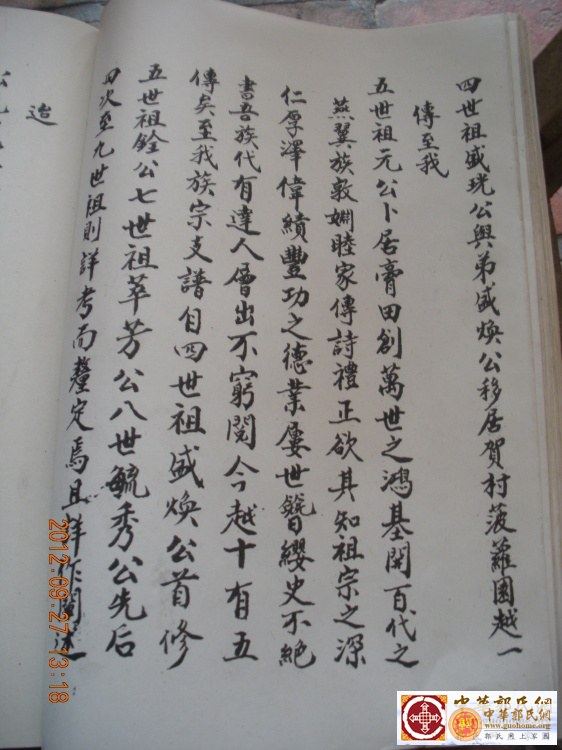 四世祖盛珖公與弟盛煥公移居賀村菠蘿園越一
傳至我
五世祖元公卜居膏田創萬世之鴻基開百代之
燕翼族敦嫻睦家傳詩禮正欲其知祖宗之深
仁厚澤偉績豐功之德業屢世簪纓史不絕
書吾族代有達人層出不窮閱今越十有五
傳矣至我族宗支譜自四世祖盛煥公首修
五世祖銓公七世祖萃芳公八世毓秀公先后
四次至九世祖則詳考而釐定焉且詳作闡述
迨
2012.09.27 13:18
中華郭氏網
中華郭氏網
www.guohome.org
郭氏網上家園